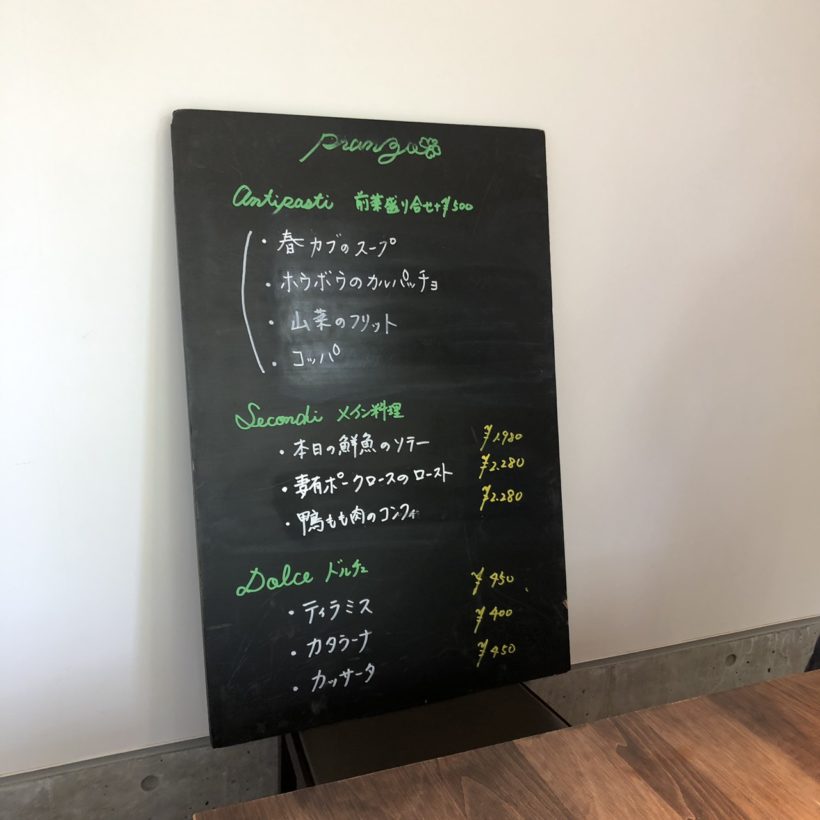 Pranzo
Antipasti 前菜盛り合せ+¥500
・春カブのスープ
・ホウボウのカルパッチョ
・山菜のフリット
・コッパ
Secondi メイン料理
・本日の鮮魚のソテー ¥1.980
・妻有ポークロースのロースト ¥2.280
・鴨もも肉のコンフィ ¥2.280
Dolce ドルチェ
・ティラミス ¥450
・カタラーナ ¥400
・カッサータ ¥450